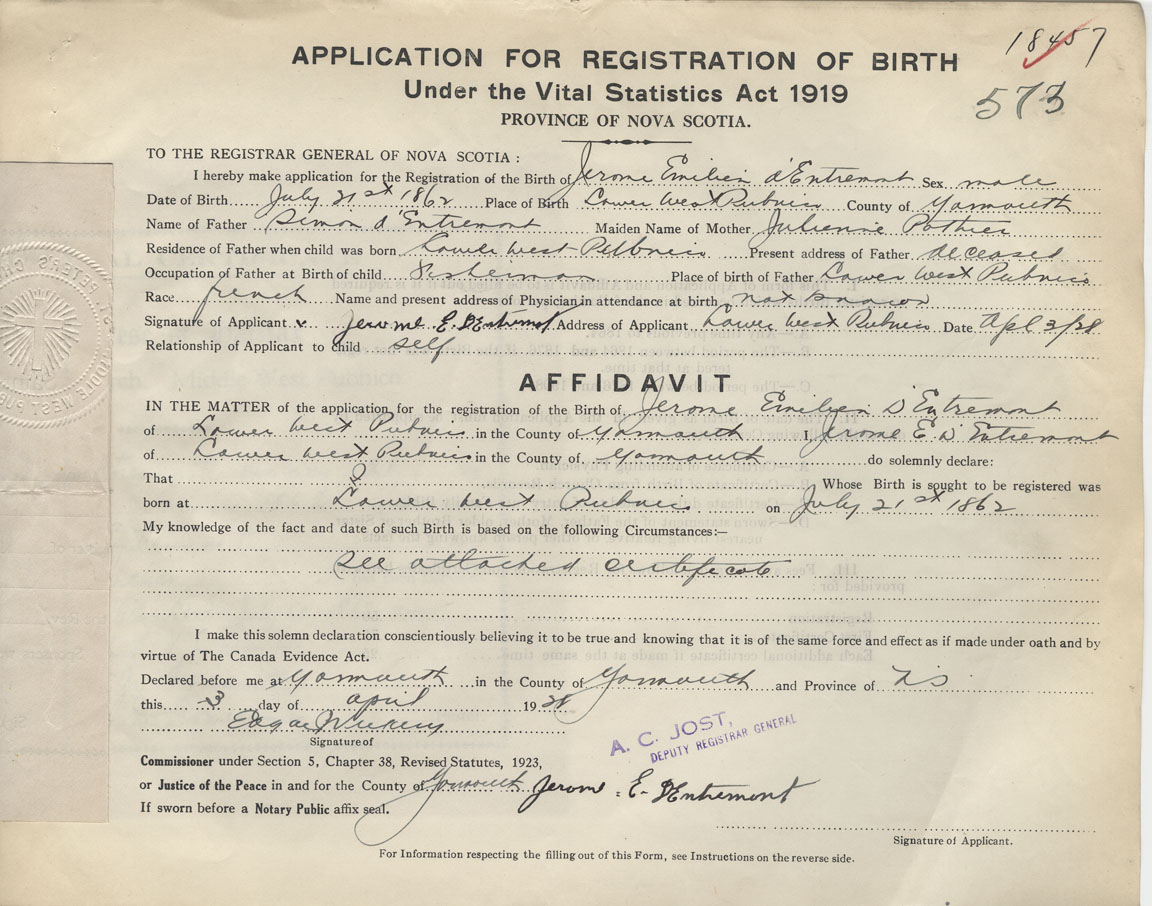 18457
APPLICATION FOR REGISTRATION OF BIRTH
573
Under the Vital Statistics Act 1919
PROVINCE OF NOVA SCOTIA.
TO THE REGISTRAR GENERAL OF NOVA SCOTIA :
I hereby make application for the Registration of the Birth of Jerome Emilien d'Entremont Sex male
Date of Birth July 21st 1862 Place of Birth Lower West Pubnico County of Yarmouth
Name of Father Simon d'Entremont Maiden Name of Mother Julienne Pothier
Residence of Father when child was born Lower West Pubnico Present address of Father deceased
Occupation of Father at Birth of child Fisherman Place of birth of Father Lower West Pubnico
Race french Name and present address of Physician in attendance at birth not known
Signature of Applicant Jerome E. D'Entremont Address of Applicant Lower West Pubnico Date Apl 3/28
Relationship of Applicant to child self
AFFIDAVIT
IN THE MATTER of the application for the registration of the Birth of Jerome Emilien D'Entremont
of Lower West Pubnico in the County of Yarmouth I, Jerome E. D'Entremont
of Lower West Pubnico in the County of Yarmouth do solemnly declare:
That I Whose Birth is sought to be registered was
born at Lower West Pubnico on July 21st 1862
My knowledge of the fact and date of such Birth is based on the following Circumstances:—
see attached certificate
I make this solemn declaration conscientiously believing it to be true and knowing that it is of the same force and effect as if made under oath and by
virtue of The Canada Evidence Act.
Declared before me at Yarmouth in the County of Yarmouth and Province of NS
this 3 day of april 1928
Edgar
Signature of
A. C. JOST,
DEPUTY REGISTRAR GENERAL
Commissioner under Section 5, Chapter 38, Revised Statutes, 1923,
or Justice of the Peace in and for the County of Yarmouth Jerome E. D'Entremont
If sworn before a Notary Public affix seal.
Signature of Applicant.
For Information respecting the filling out of this Form, see Instructions on the reverse side.